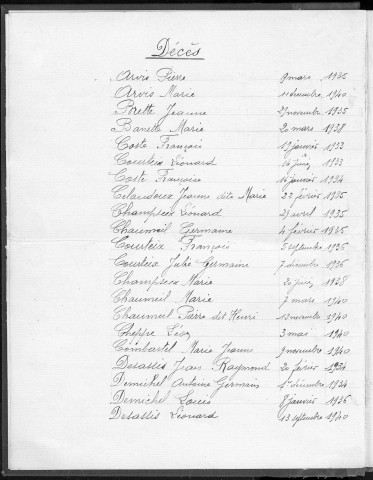 Décès
Arvis Pierre 9 mars 1936
Arvis Marie 11 décembre 1940
Barette Jeanne 27 novembre 1935
Banette Marie 20 mars 1938
Coste François 19 janvier 1933
Courteix Léonard 1933
Coste Françoise 16 janvier 1934
Jeanne dite Marie 22 février 1935
Champseix Léonard 29 avril 1935
Chaumeil Germaine 4 février 1935
Courteix François 5 septembre 1936
Courteix Julie Germaine 7 décembre 1936
Champseix Marie 1938
Chaumeil Marie 7 mars 1940
Chaumeil Pierre dit Henri 12 novembre 1940
Cheppe Léon 3 mai 1940
Combastel Marie Jeanne 9 novembre 1940
Desassis Jean Raymond 20 février 1934
Demichel Antoine Germain 1er décembre 1934
Demichel Louis 8 janvier 1936
Desassis Léonard 13 septembre 1940